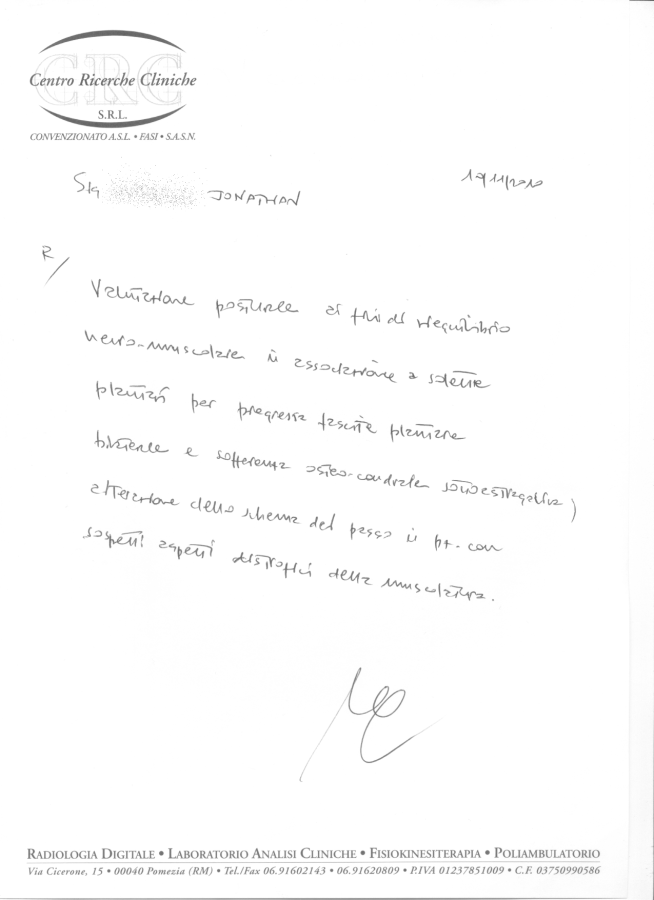 CRC
Centro Ricerche Cliniche
S.R.L.
CONVENZIONATO A.S.L. • FASI • S.A.S.N.
Sig JONATHAN
R/
Valutazione posturale ai fini del riequilibrio
neuro-muscolare in associazione a solette
plantari per pregressa fascite plantare
bilaterale e sofferenza osteo-condrale sottoastragalica,
alterazione dello schema del passo in pt. con
sospetti aspetti distrofici della muscolatura.
RADIOLOGIA DIGITALE • LABORATORIO ANALISI CLINICHE • FISIOKINESITERAPIA • POLIAMBULATORIO
Via Cicerone, 15 • 00040 Pomezia (RM) • Tel./Fax 06.91602143 • 06.91620809 • P.IVA 01237851009 • C.F. 03750990586